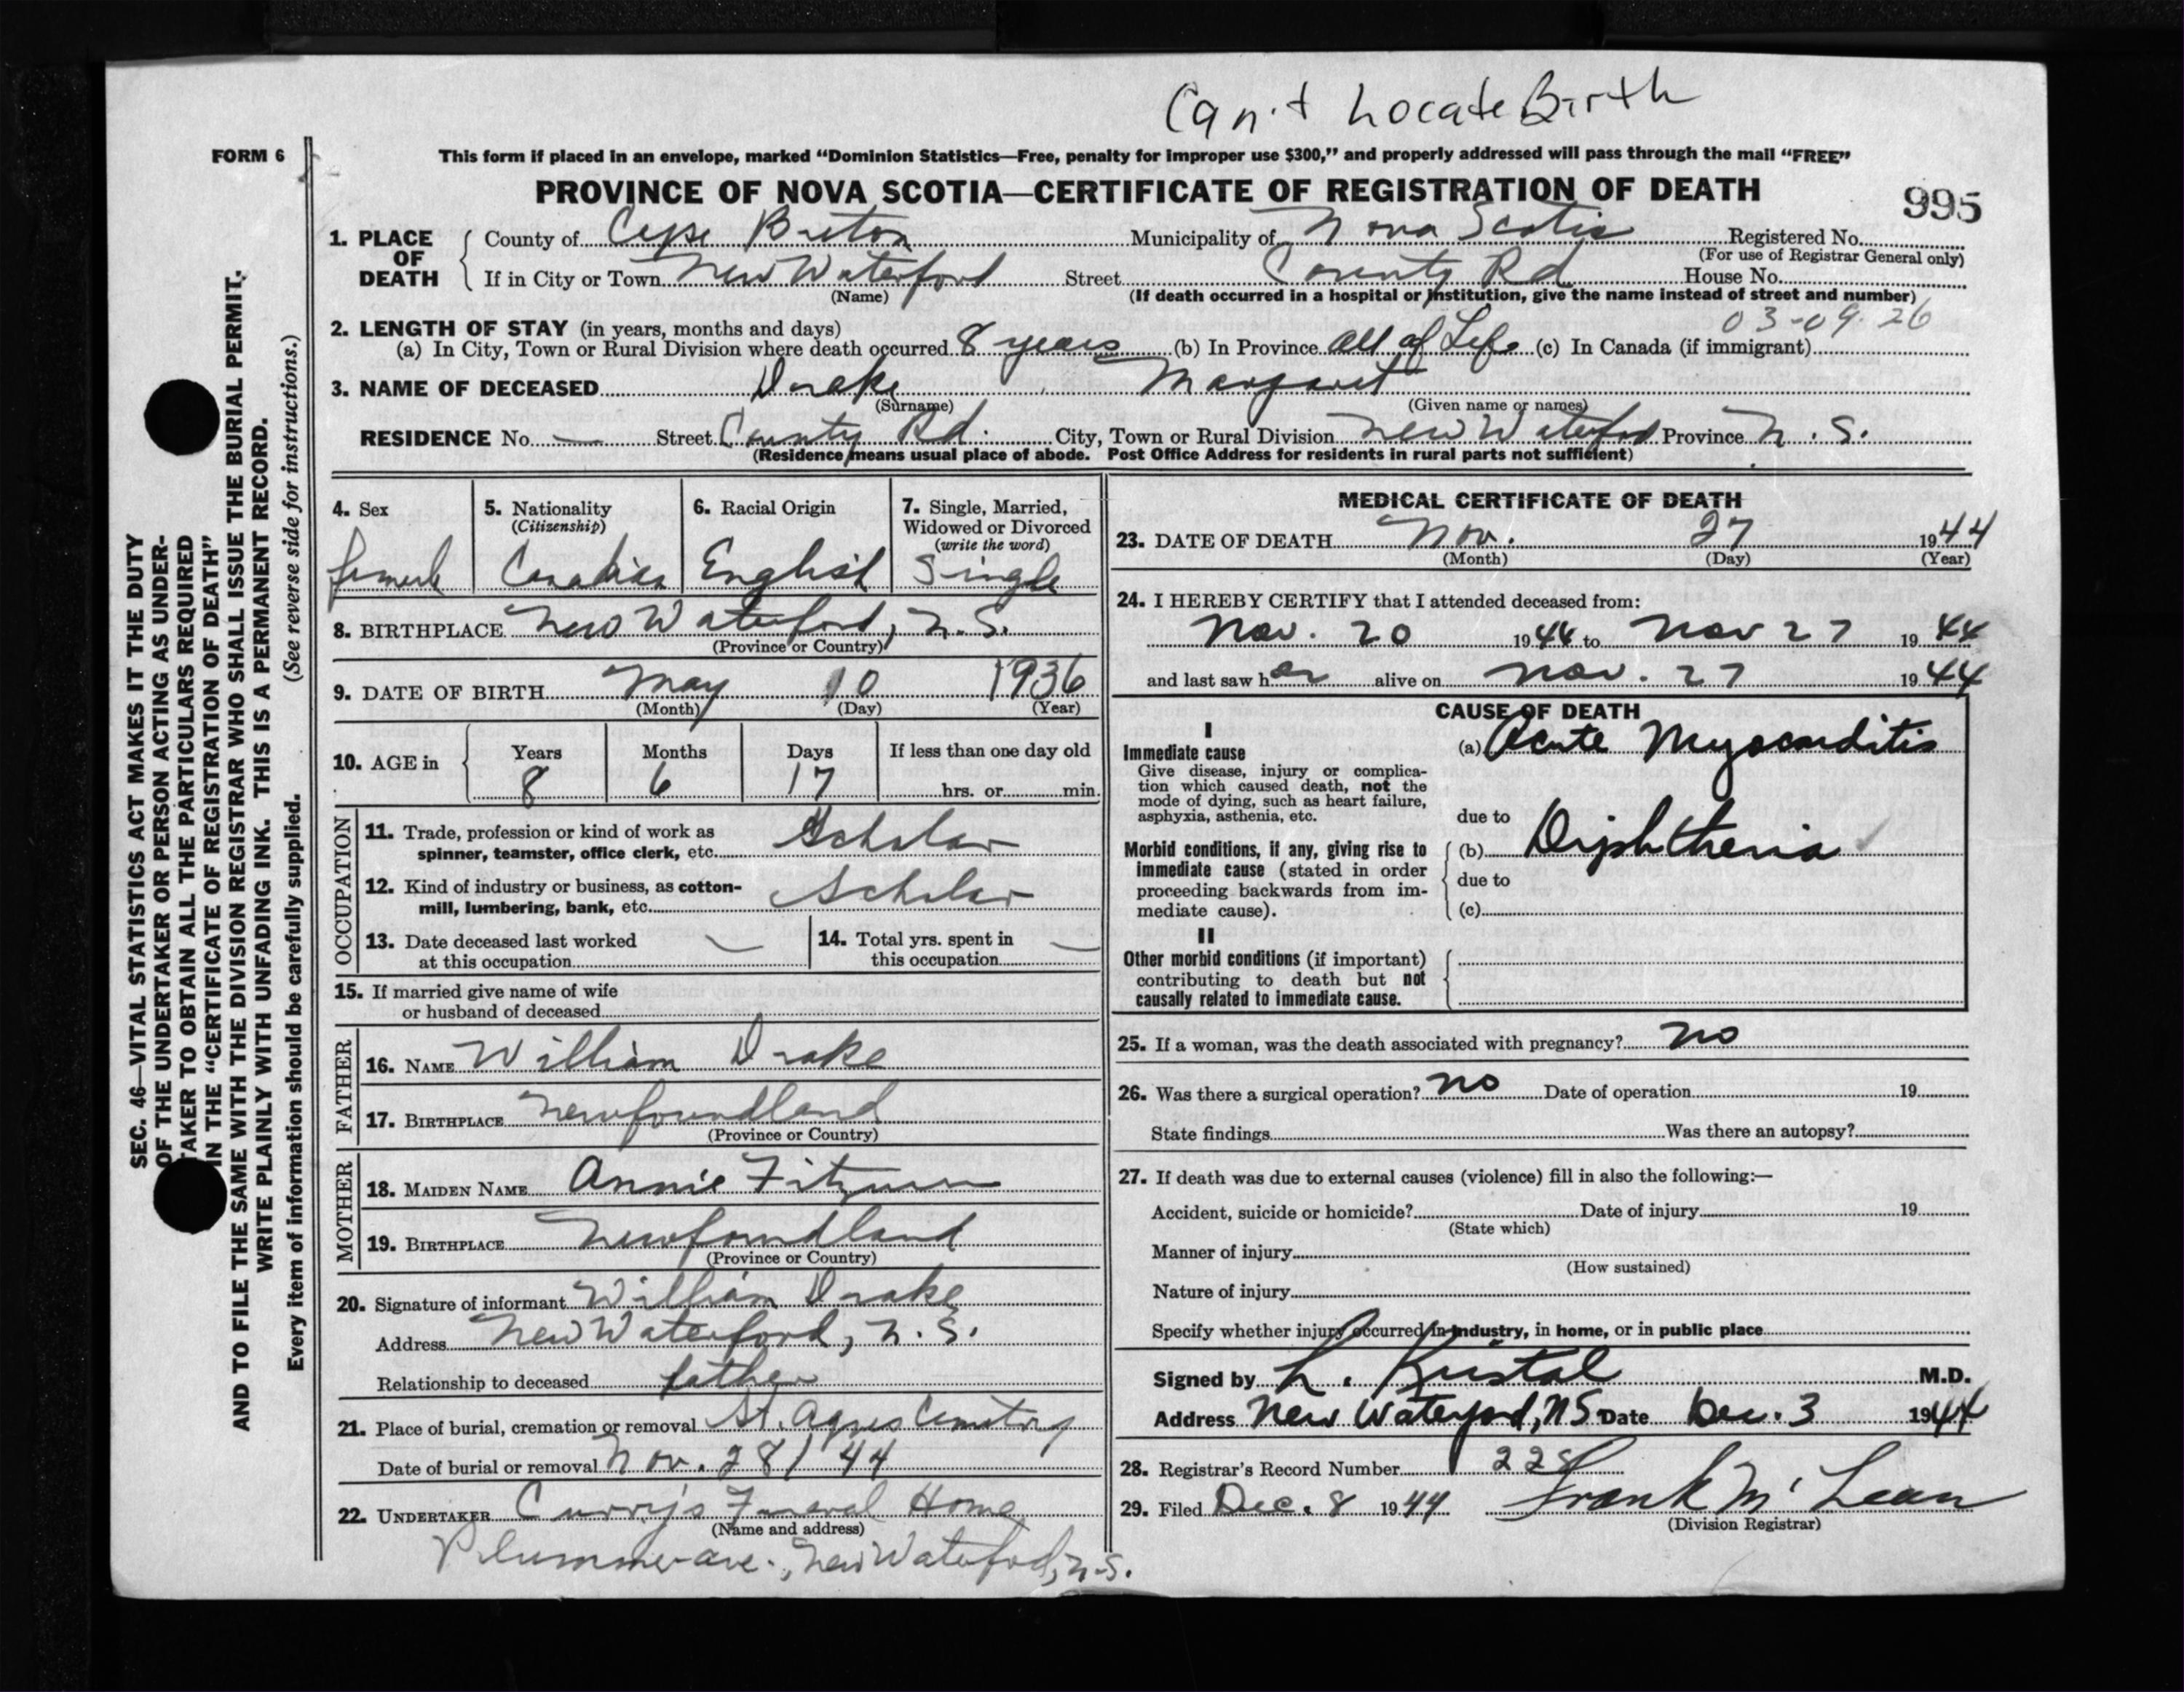 Can't Locate Birth
FORM 6
This form if placed in an envelope, marked “Dominion Statistics—Free, penalty for improper use $300,” and properly addressed will pass through the mail “FREE”
PROVINCE OF NOVA SCOTIA—CERTIFICATE OF REGISTRATION OF DEATH
995
1. PLACE OF DEATH
County of Cape Breton Municipality of Nova Scotia Registered No.
(For use of Registrar General only)
If in City or Town New Waterford Street County Rd House No.
(Name) (If death occurred in a hospital or institution, give the name instead of street and number)
03-09-26
2. LENGTH OF STAY (in years, months and days)
(a) In City, Town or Rural Division where death occurred 8 years (b) In Province All of Life (c) In Canada (if immigrant)
3. NAME OF DECEASED Drake Margaret
(Surname) (Given name or names)
RESIDENCE No. — Street County Rd. City, Town or Rural Division New Waterford Province N. S.
(Residence means usual place of abode. Post Office Address for residents in rural parts not sufficient)
4. Sex
female
5. Nationality
(Citizenship)
Canadian
6. Racial Origin
English
7. Single, Married,
Widowed or Divorced
(write the word)
Single
8. BIRTHPLACE New Waterford, N.S.
(Province or Country)
9. DATE OF BIRTH May 10 1936
(Month) (Day) (Year)
10. AGE in
Years Months Days If less than one day old
8 6 17 hrs. or min.
OCCUPATION
11. Trade, profession or kind of work as
spinner, teamster, office clerk, etc. Scholar
12. Kind of industry or business, as cotton-
mill, lumbering, bank, etc. Scholar
13. Date deceased last worked
at this occupation —
14. Total yrs. spent in
this occupation —
15. If married give name of wife
or husband of deceased
FATHER
16. NAME William Drake
17. BIRTHPLACE Newfoundland
(Province or Country)
MOTHER
18. MAIDEN NAME Annie
19. BIRTHPLACE Newfoundland
(Province or Country)
20. Signature of informant William Drake
Address New Waterford, N. S.
Relationship to deceased father
21. Place of burial, cremation or removal St. Agnes Cemetery
Date of burial or removal Nov. 28/44
22. UNDERTAKER Curry's Funeral Home
(Name and address)
Plummer ave., New Waterford, N.S.
MEDICAL CERTIFICATE OF DEATH
23. DATE OF DEATH Nov. 27 1944
(Month) (Day) (Year)
24. I HEREBY CERTIFY that I attended deceased from:
Nov. 20 1944 to Nov 27 1944
and last saw her alive on Nov. 27 1944
CAUSE OF DEATH
I
Immediate cause
Give disease, injury or complica-
tion which caused death, not the
mode of dying, such as heart failure,
asphyxia, asthenia, etc.
(a) Acute Myocarditis
due to
Morbid conditions, if any, giving rise to
immediate cause (stated in order
proceeding backwards from im-
mediate cause).
(b) Diphtheria
due to
(c)
II
Other morbid conditions (if important)
contributing to death but not
causally related to immediate cause.
25. If a woman, was the death associated with pregnancy? no
26. Was there a surgical operation? no Date of operation 19
State findings Was there an autopsy?
27. If death was due to external causes (violence) fill in also the following:—
Accident, suicide or homicide? Date of injury 19
(State which)
Manner of injury
(How sustained)
Nature of injury
Specify whether injury occurred in industry, in home, or in public place
Signed by L. Kristal M.D.
Address New Waterford, NS Date Dec. 3 1944
28. Registrar's Record Number 228
29. Filed Dec. 8 1944 Frank McLean
(Division Registrar)
SEC. 46—VITAL STATISTICS ACT MAKES IT THE DUTY
OF THE UNDERTAKER OR PERSON ACTING AS UNDER-
TAKER TO OBTAIN ALL THE PARTICULARS REQUIRED
IN THE “CERTIFICATE OF REGISTRATION OF DEATH”
AND TO FILE THE SAME WITH THE DIVISION REGISTRAR WHO SHALL ISSUE THE BURIAL PERMIT.
WRITE PLAINLY WITH UNFADING INK. THIS IS A PERMANENT RECORD.
Every item of information should be carefully supplied. (See reverse side for instructions.)